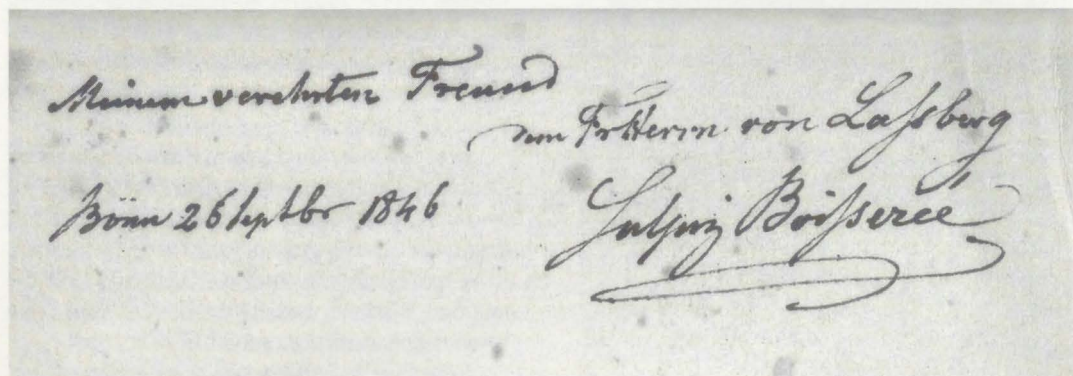 Meinem verehrten Freund
dem FrHerrn von Laſsberg
Bonn 26 Septbr 1846
Sulpiz Boiſserée